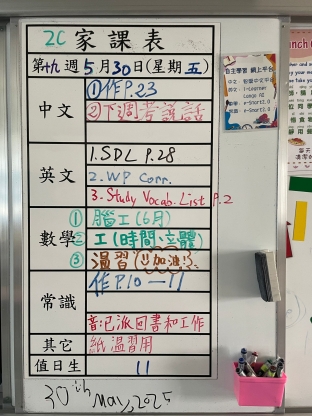 2C 家課表
第十九週 5月30日(星期五)
中文
①作P.23
②下週考說話
英文
1.SDL P.28
2.WP Corr.
3.Study Vocab. List P.2
數學
① 腦工(6月)
② 工(時間、立體)
③ 溫習(加油!)
常識
作P.10—11
音:已派回書和工作
其它
紙溫習用
值日生
11
30th May, 2025
自主學習 網上平台